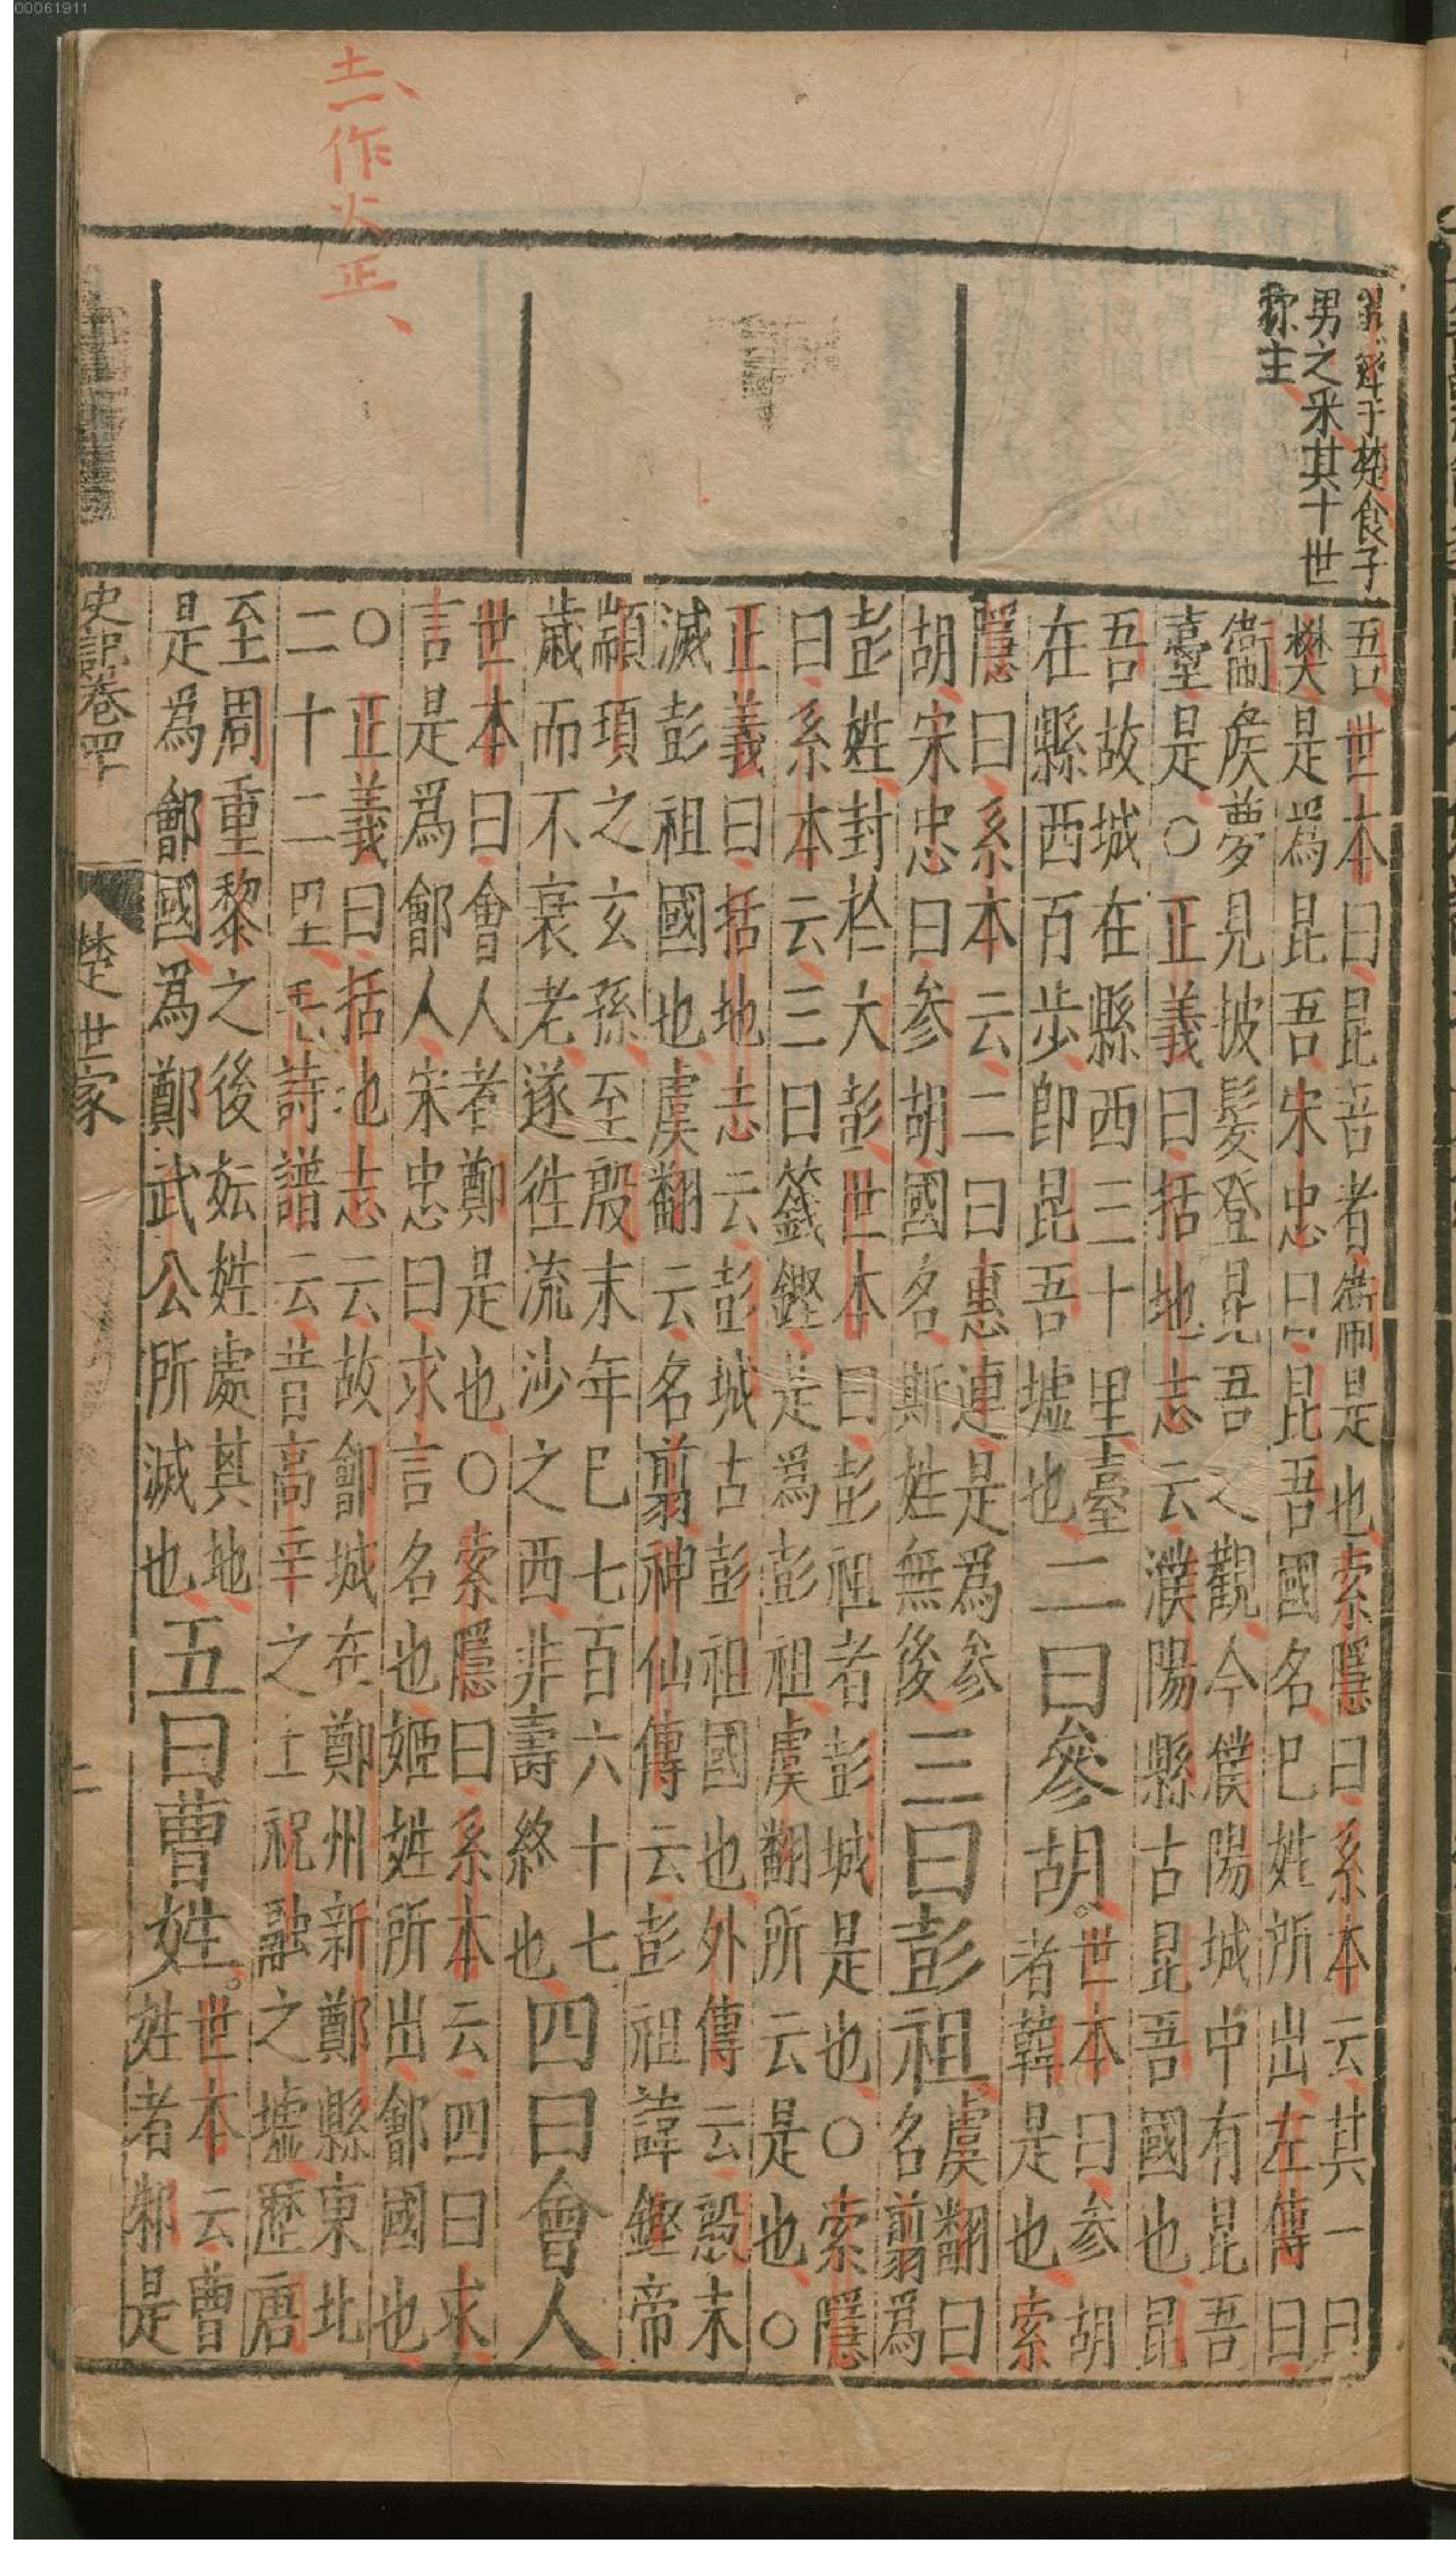 00061911
土一作火正
于楚食子
男之采其十世
称主
吾世本曰昆吾者衛是也索隱曰系本云其一曰
樊是爲昆吾宋忠曰昆吾國名已姓所出左傳曰
衛矦夢見披髮登昆吾之觀今濮陽城中有昆吾
臺是○正義曰括地志云濮陽縣古昆吾國也昆
吾故城在縣西三十里臺
在縣西百步卽昆吾墟也
二曰參胡
世本曰参胡
者韓是也索
隱曰系本云二曰惠連是爲参
胡宋忠曰参胡國名斯姓無後
三曰彭祖
虞翻曰
名翦爲
彭姓封於大彭世本曰彭祖者彭城是也○索隱
曰系本云三曰籛鏗是爲彭祖虞翻所云是也○
正義曰括地志云彭城古彭祖國也外傳云殷末
滅彭祖國也虞翻云名翦神仙傳云彭祖諱鏗帝
顓頊之玄孫至殷末年已七百六十七
歲而不衰老遂徃流沙之西非壽終也
四曰會人
世本曰會人者鄭是也○索隱曰系本云四曰求
言是爲鄶人宋忠曰求言名也姬姓所出鄶國也
○正義曰括地志云故鄶城在鄭州新鄭縣東北
二十二里毛詩譜云昔高辛之土祝融之墟歷唐
至周重黎之後妘姓處其地
是爲鄶國爲鄭武公所滅也
五曰曹姓
世本云曹
姓者邾是
史記卷四
楚世家
二